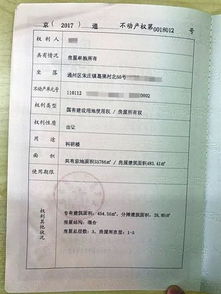 京（2017）通 不动产权第0018012号
权利人
共有情况 房屋单独所有
坐落 通州区宋庄镇葛渠村北
不动产单元号 110112 0002
权利类型 国有建设用地使用权／房屋所有权
权利性质 出让
用途 科研楼
面积 共有宗地面积55766㎡／房屋建筑面积483.41㎡
权利其他状况
专有建筑面积：454.56㎡，分摊建筑面积：28.85㎡
房屋结构：混合
房屋总层数：3，房屋所在层：1-3